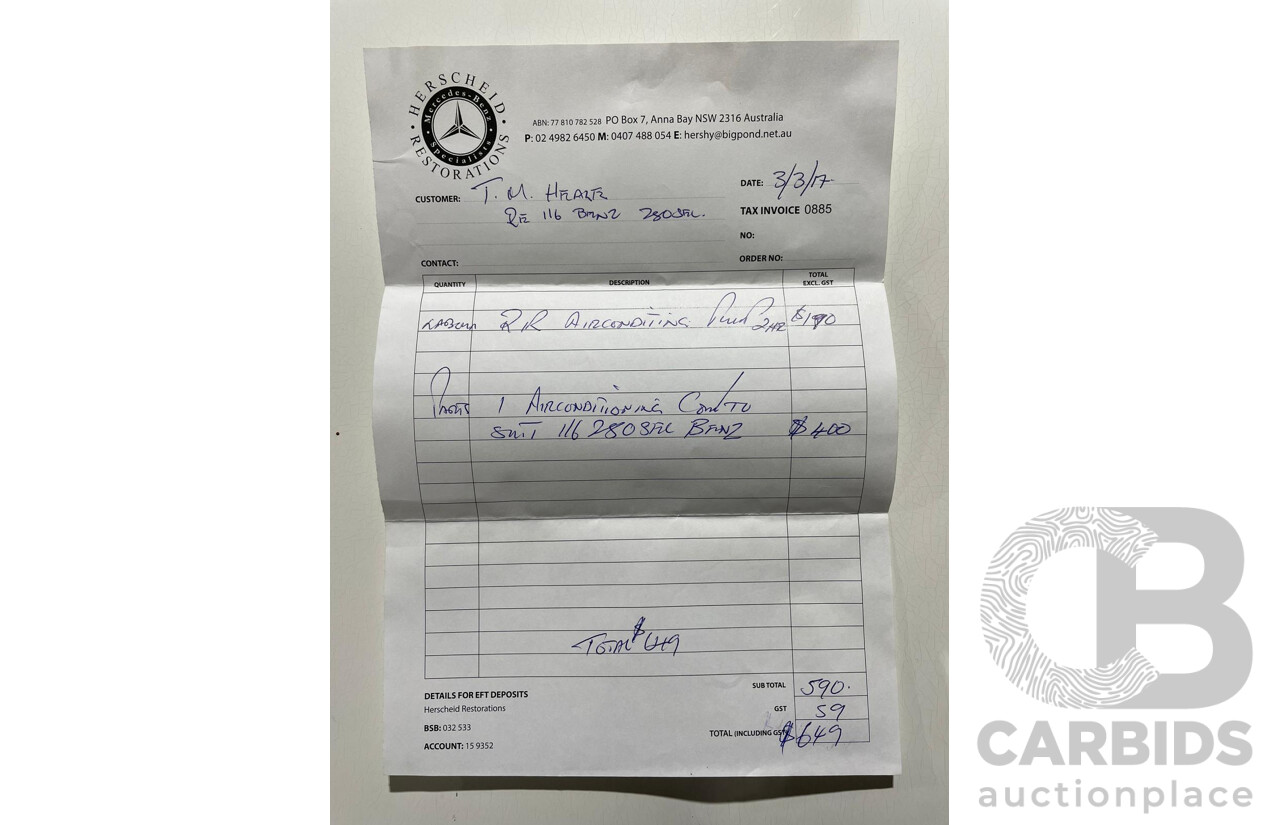 HERSCHEID RESTORATIONS
Mercedes-Benz Specialists
ABN: 77 810 782 528 PO Box 7, Anna Bay NSW 2316 Australia
P: 02 4982 6450 M: 0407 488 054 E: hershy@bigpond.net.au
DATE: 3/3/17
CUSTOMER: T. M.
TAX INVOICE 0885
RE 116 BENZ 280SEL.
NO:
CONTACT:
ORDER NO:
QUANTITY DESCRIPTION TOTAL EXCL. GST
LABOUR RR AIRCONDITING PUMP 2HR $190
PARTS 1 AIRCONDITIONING TO
SUIT 116 280SEL BENZ $400
TOTAL $649
DETAILS FOR EFT DEPOSITS
Herscheid Restorations
BSB: 032 533
ACCOUNT: 15 9352
SUB TOTAL 590.
GST 59
TOTAL (INCLUDING GST) $649
CB
CARBIDS
auctionplace